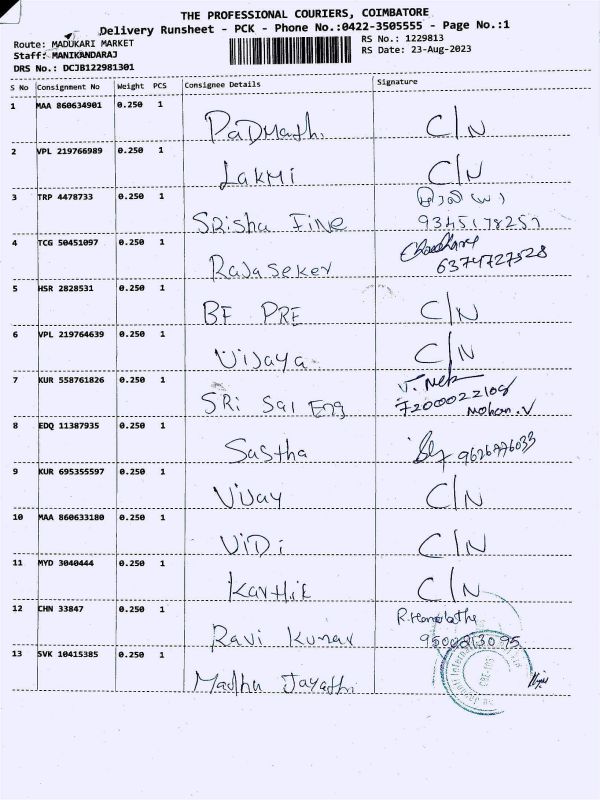 THE PROFESSIONAL COURIERS, COIMBATORE
Delivery Runsheet - PCK - Phone No.:0422-3505555 - Page No.:1
Route: MADUKARI MARKET
RS No.: 1229813
Staff: MANIKANDARAJ
RS Date: 23-Aug-2023
DRS No.: DCJB122981301
S No Consignment No Weight PCS Consignee Details Signature
1 MAA 860634901 0.250 1
PaDMathi C/N
2 VPL 219766989 0.250 1
LakMi C/N
3 TRP 4478733 0.250 1
SRisha FiNe 9345178257
4 TCG 50451097 0.250 1
RaJaSeker 6374727528
5 HSR 2828531 0.250 1
BF PRE C/N
6 VPL 219764639 0.250 1
ViJaya C/N
7 KUR 558761826 0.250 1
SRi Sai Eng 7200022108
Mohan.V
8 EDQ 11387935 0.250 1
Sastha 9626776033
9 KUR 695355597 0.250 1
Vijay C/N
10 MAA 860633180 0.250 1
ViDi C/N
11 MYD 3040444 0.250 1
Karthik C/N
12 CHN 33847 0.250 1
R.Hemalatha
Ravi Kumar 9500213095
13 SVK 10415385 0.250 1
Madhu Jayathri